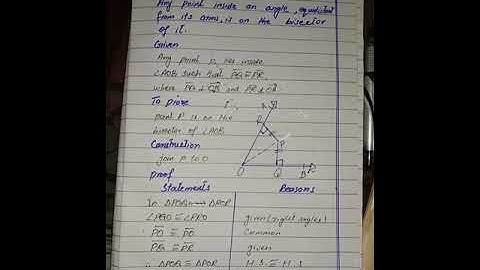 Any point inside an angle, equidistant
from its arms, is on the bisector
of it.
Given
Any point P, lies inside
∠AOB such that PQ ≅ PR
where PQ ⊥ OB and PR ⊥ OA
To prove
point P is on the
bisector of ∠AOB
Construction
Join P to O
A
R
P
O
Q
B
Proof
Statements Reasons
In ΔPOQ ⟷ ΔPOR
∠PQO ≅ ∠PRO given (right angles)
PO ≅ PO Common
PQ ≅ PR given
∴ ΔPOQ ≅ ΔPOR H.S ≅ H.S